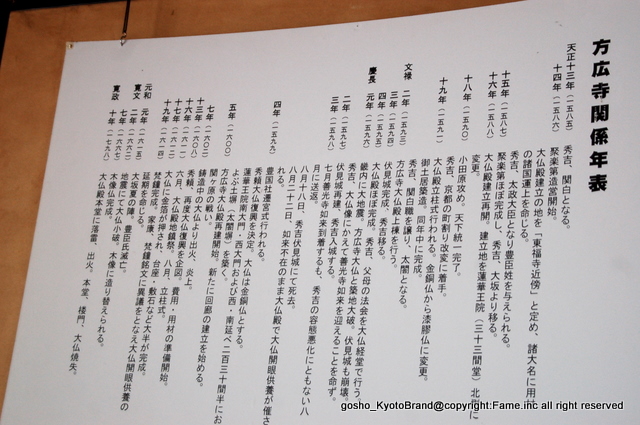 方広寺関係年表
天正十三年（一五八五）　秀吉、関白となる。
十四年（一五八六）　聚楽第造営開始。
大仏殿建立の地を「東福寺近傍」と定め、諸大名に用材
の諸国運上を命じる。
秀吉、太政大臣となり豊臣姓を与えられる。
十五年（一五八七）　聚楽第ほぼ完成し、秀吉、大坂より移る。
十六年（一五八八）　大仏殿建立再開。建立地を蓮華王院（三十三間堂）北側に
変更。
十八年（一五九〇）　小田原攻め。天下統一完了。
秀吉、京都の町割り改変に着手。
十九年（一五九一）　大仏殿立柱式行われる。金銅仏から漆膠仏に変更。
御土居築造。同年中に完成。
秀吉、関白職を譲り、太閤となる。
文禄　二年（一五九三）　方広寺大仏殿上棟を行う。
三年（一五九四）　伏見城完成、秀吉移る。
四年（一五九五）　大仏殿ほぼ完成。秀吉、父母の法会を大仏経堂で行う。
慶長　元年（一五九六）　畿内に大地震。方広寺大仏と築地大破。伏見城も崩壊。
二年（一五九七）　秀吉、大仏像にかえて善光寺如来を迎えることを命ず。
伏見城再建、秀吉入城する。
三年（一五九八）　七月善光寺如来到着するも、秀吉の容態悪化にともない八
月に送返。
八月十八日、秀吉伏見城にて死去。
八月二十二日、如来不在のまま大仏殿で大仏開眼供養が催さ
れる。
四年（一五九九）　豊国社遷宮式行われる。
秀頼大仏復興を決定。大仏は金銅仏とする。
蓮華王院南大門・西大門および西・南延べ二百三十間半にお
よぶ土塀（太閤塀）を築く。
五年（一六〇〇）　方広寺大仏殿再建開始。新たに回廊の建立を始める。
関ヶ原の戦い。
七年（一六〇二）　鋳造中の大仏より出火、炎上。
十三年（一六〇八）　秀頼、再度大仏復興を企図。費用・用材の準備開始。
十六年（一六一一）　六月、大仏殿地鎮祭。八月、立柱式。
十七年（一六一二）　大仏に金箔が押され、台座・敷石など大半が完成。
十九年（一六一四）　梵鐘完成。家康、梵鐘銘文に異議をとなえ大仏開眼供養の
延期を命じる。
元和　元年（一六一五）　大坂夏の陣。豊臣氏滅亡。
寛文　二年（一六六二）　地震にて大仏小破。木像に造り替えられる。
七年（一六六七）　木像大仏完成。
寛政　十年（一七九八）　大仏殿本堂に落雷、出火。本堂、楼門、大仏焼失。
gosho_KyotoBrand@copyright:Fame.inc all right reserved